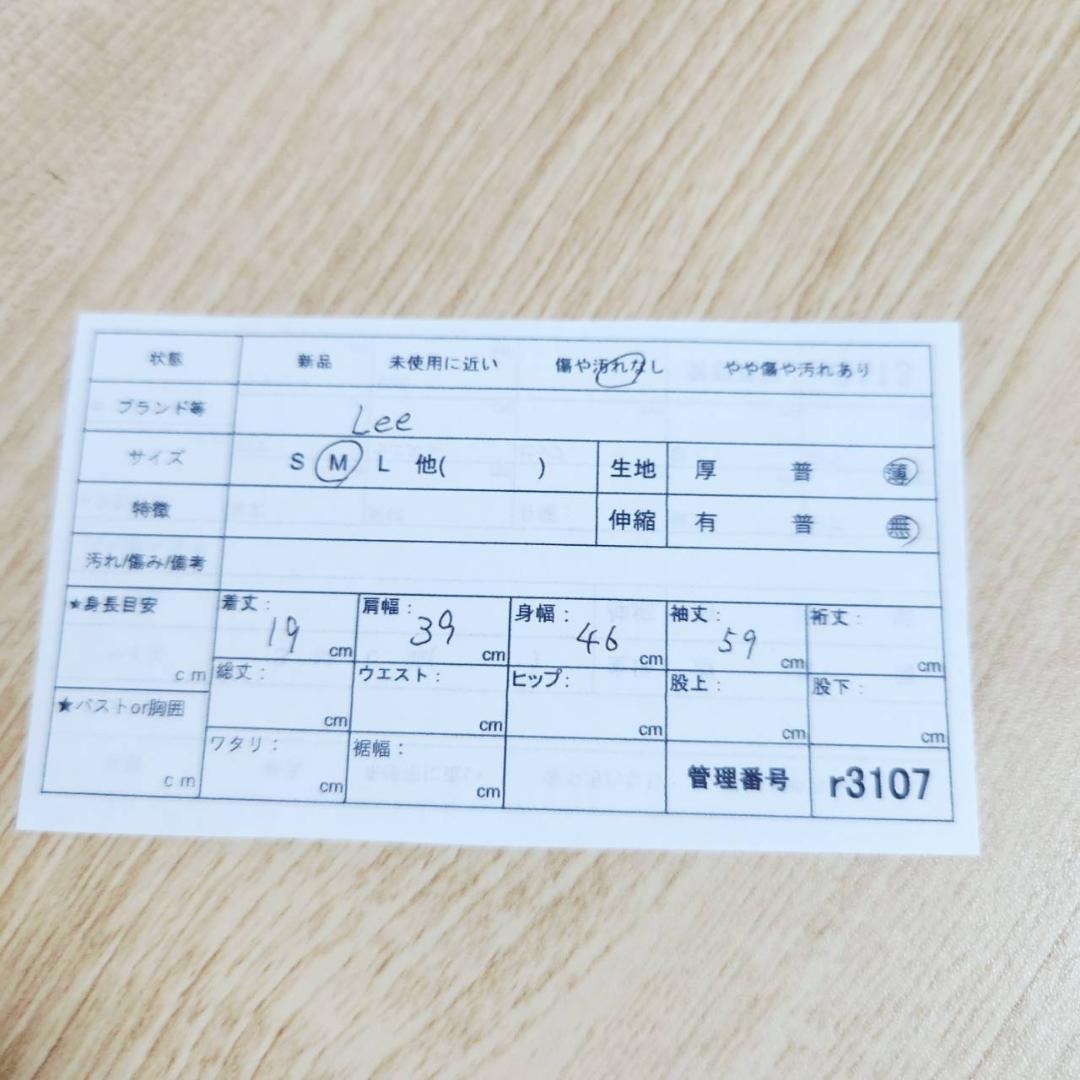 状態 新品 未使用に近い 傷や汚れなし やや傷や汚れあり
ブランド等 Lee
サイズ S M L 他( ) 生地 厚 普 薄
特徴 伸縮 有 普 無
汚れ/傷み/備考
★身長目安 cm 着丈: 19 cm 肩幅: 39 cm 身幅: 46 cm 袖丈: 59 cm 裄丈: cm
総丈: cm ウエスト: cm ヒップ: cm 股上: cm 股下: cm
★バストor胸囲 cm ワタリ: cm 裾幅: cm 管理番号 r3107